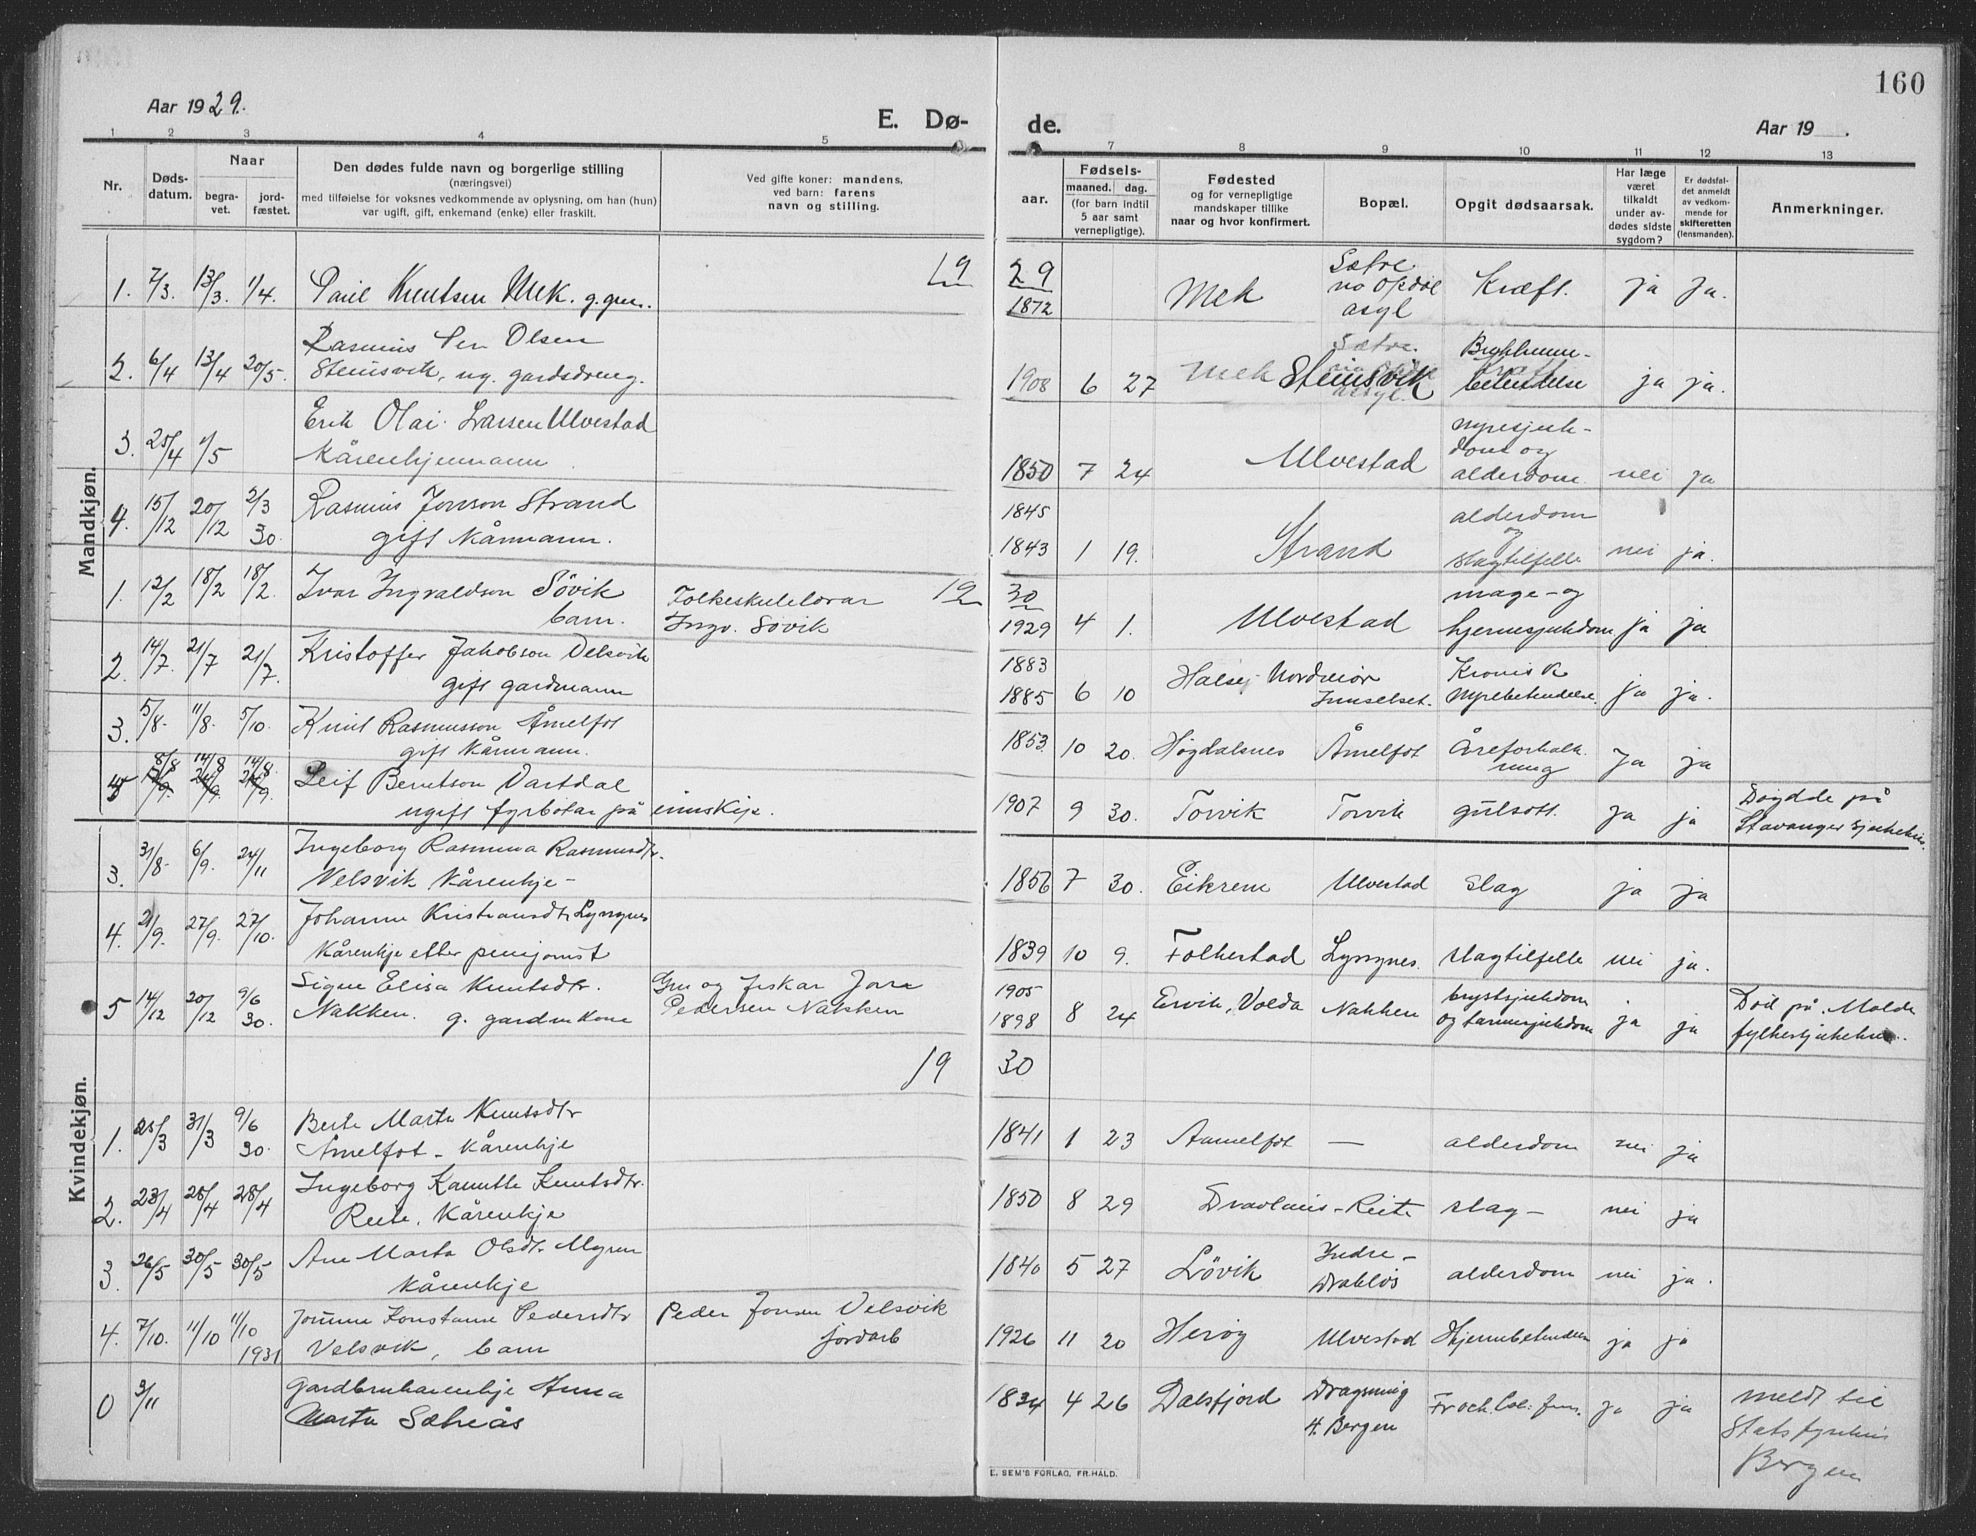 160
Aar 1929.
E. Dø-
de.
Aar 19 .
1 2 3 4 5 7 8 9 10 11 12 13
Nr.
Døds-
datum.
Naar
begra-
vet.
jord-
fæstet.
Den dødes fulde navn og borgerlige stilling
(næringsvei)
med tilføielse for voksnes vedkommende av oplysning, om han (hun)
var ugift, gift, enkemand (enke) eller fraskilt.
Ved gifte koner: mandens,
ved barn: farens
navn og stilling.
aar.
Fødsels-
maaned. dag.
(for barn indtil
5 aar samt
vernepligtige).
Fødested
og for vernepligtige
mandskaper tillike
naar og hvor konfirmert.
Bopæl.
Opgit dødsaarsak.
Har læge
været
tilkaldt
under av-
dødes sidste
sygdom?
Er dødsfal-
det anmeldt
av vedkom-
mende for
skifteretten
(lensmanden).
Anmerkninger.
Mandkjøn.
19 29
1. 7/3. 13/3. 1/4. Paul Knutsen Mek. g. 1872 Mek Sætre asyl Kræft. ja ja.
2. 6/4 13/4 20/5. Rasmus Per Olsen
Steinsvik, ug. gardsdreng. 1908 6 27 Steinsvik ja ja.
3. 25/4 1/5 Erik Olai Larsen Ulvestad
Kårenkjemann 1850 7 24 Ulvestad nyresjuk-
dom og
alderdom nei ja
4. 15/12 20/12 2/3 30. Rasmus Jonson Strand
gift kårmann. 1845
1843 1 19. Strand alderdom
og
slagtilfelle nei ja.
19 30
1. 12/2 18/2 18/2. Ivar Ingvaldson Søvik
barn. Folkeskulelærar
Ingv. Søvik 1929 4 1. Ulvestad mage- og
hjernesjukdom ja ja
2. 14/7. 21/7 21/7. Kristoffer Jakobson Velsvik
gift gardmann 1883
1885 6 10 Halsej Nordmør Kronisk
Nyrebetendelse. ja ja.
3. 5/8. 11/8. 5/10. Knut Rasmusson Åmelfot
gift kårmann. 1853 10 20. Høgdalsnes Åmelfot Åreforkalk
ning ja ja
8/8 14/8 14/8 Leif Berntson Vartdal
ugift fyrbøtar på 1907 9 30. Torvik Torvik gulsott. ja ja Døydde på
Stavanger sjukehus.
Kvindekjøn.
3. 31/8. 6/9. 24/11 Ingeborg Rasmina Rasmusdtr.
Velsvik Kårenkje - 1856 7 30. Eikrem Ulvestad slag ja ja
4. 21/9. 27/9. 27/10. Johanne Kristiansdtr Lyngnes
Kårenkje etter pensjonist 1839 10 9. Folkestad Lyngnes. slagtilfelle nei ja.
5 14/12 20/12 9/6 30. Signe Elisa Knutsdtr.
Nakken. g. gardmkone Gm og fiskar
Pedersen Nakken 1905
1898 8 24 Ervik, Volda Nakken brystsjukdom
og tarmsjukdom ja ja Død på Molde
fylkessjukehus.
19 30
1. 25/3 31/3 9/6 30. Berte Marte Knutsdtr
Åmelfot - kårenkje 1841 1 23 Aamelfot — alderdom nei ja
2. 23/4 28/4 28/4 Ingeborg Kanutte Knutsdtr.
Reite. Kårenkje 1850 8 29 Reite slag - nei ja
3. 26/5 30/5 30/5 Ane Marta Olsdtr Myren
kårenkje 1840 5 27 Løvik Indre -
Drabløs alderdom nei ja.
4. 7/10. 11/10 11/10 1931 Konstanse Pedersdtr
Velsvik, barn Peder Jonsen Velsvik
jordarb 1926 11 20 Herøy Ulvestad Hjernebetendelse ja ja
0 3/11 Anna
Marta Sætreås 1834 4 26 Dalsfjord Bergen ja ja meldt til
Bergen
E. SEM'S FORLAG, FR.HALD.